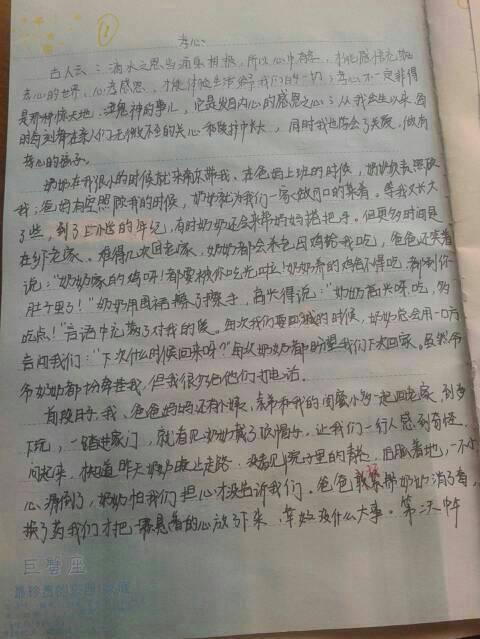 ①
孝心
古人云:滴水之恩当涌泉相报,所以心中有孝,才能感悟充满
孝心的世界,心存感恩,才能体验生活给我们的一切;孝心不一定非得
是那种惊天地、泣鬼神的事儿,它是发自内心的感恩之心;从我出生以来,每
时每刻都在亲人们无微不至的关心和呵护中长大,同时我也学会了关爱,做有
孝心的孩子。
奶奶在我很小的时候就来带我,在爸妈上班的时候,奶奶负责照顾
我;爸妈有空照顾我的时候,奶奶就为我们一家做可口的菜肴。等我又长大
了些,到了上小学的年纪,有时奶奶还会来帮妈妈搭把手。但更多时间是
在乡下老家。难得几次回老家,奶奶都会煮土鸡蛋给我吃,爸爸还笑着
说:"奶奶家的鸡呀!都要被你吃光啦!奶奶养的鸡舍不得吃,都到你
肚子里了!"奶奶用围裙擦了擦手,高兴得说:"奶奶高兴呀,吃,多
吃点!"言语中充满了对我的爱。每次我们要回城的时候,奶奶总会用一口方
言问我们:"下次什么时候回来呀?"每次奶奶都盼望我们下次回家。虽然爷
爷奶奶都十分牵挂我,但我很少给他们打电话。
前段日子,我、爸爸妈妈还有小姨、表弟和我的闺蜜小 一起回老家
下玩,一踏进家门,就看见奶奶戴了顶帽子,让我们一行人感到奇怪,
问起来,才知道昨天奶奶晚上走路,没看见院子里的青苔,
心滑倒了,奶奶怕我们担心才没告诉我们。爸爸 帮奶奶消了毒,
换了药我们才把 悬着的心放了下来,幸好没什么大事。第二天中午
巨蟹座